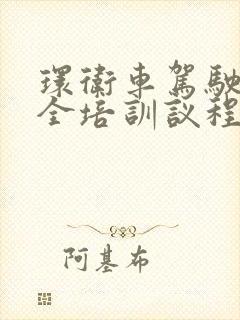 環衛車駕駛
全培訓議程
阿基布